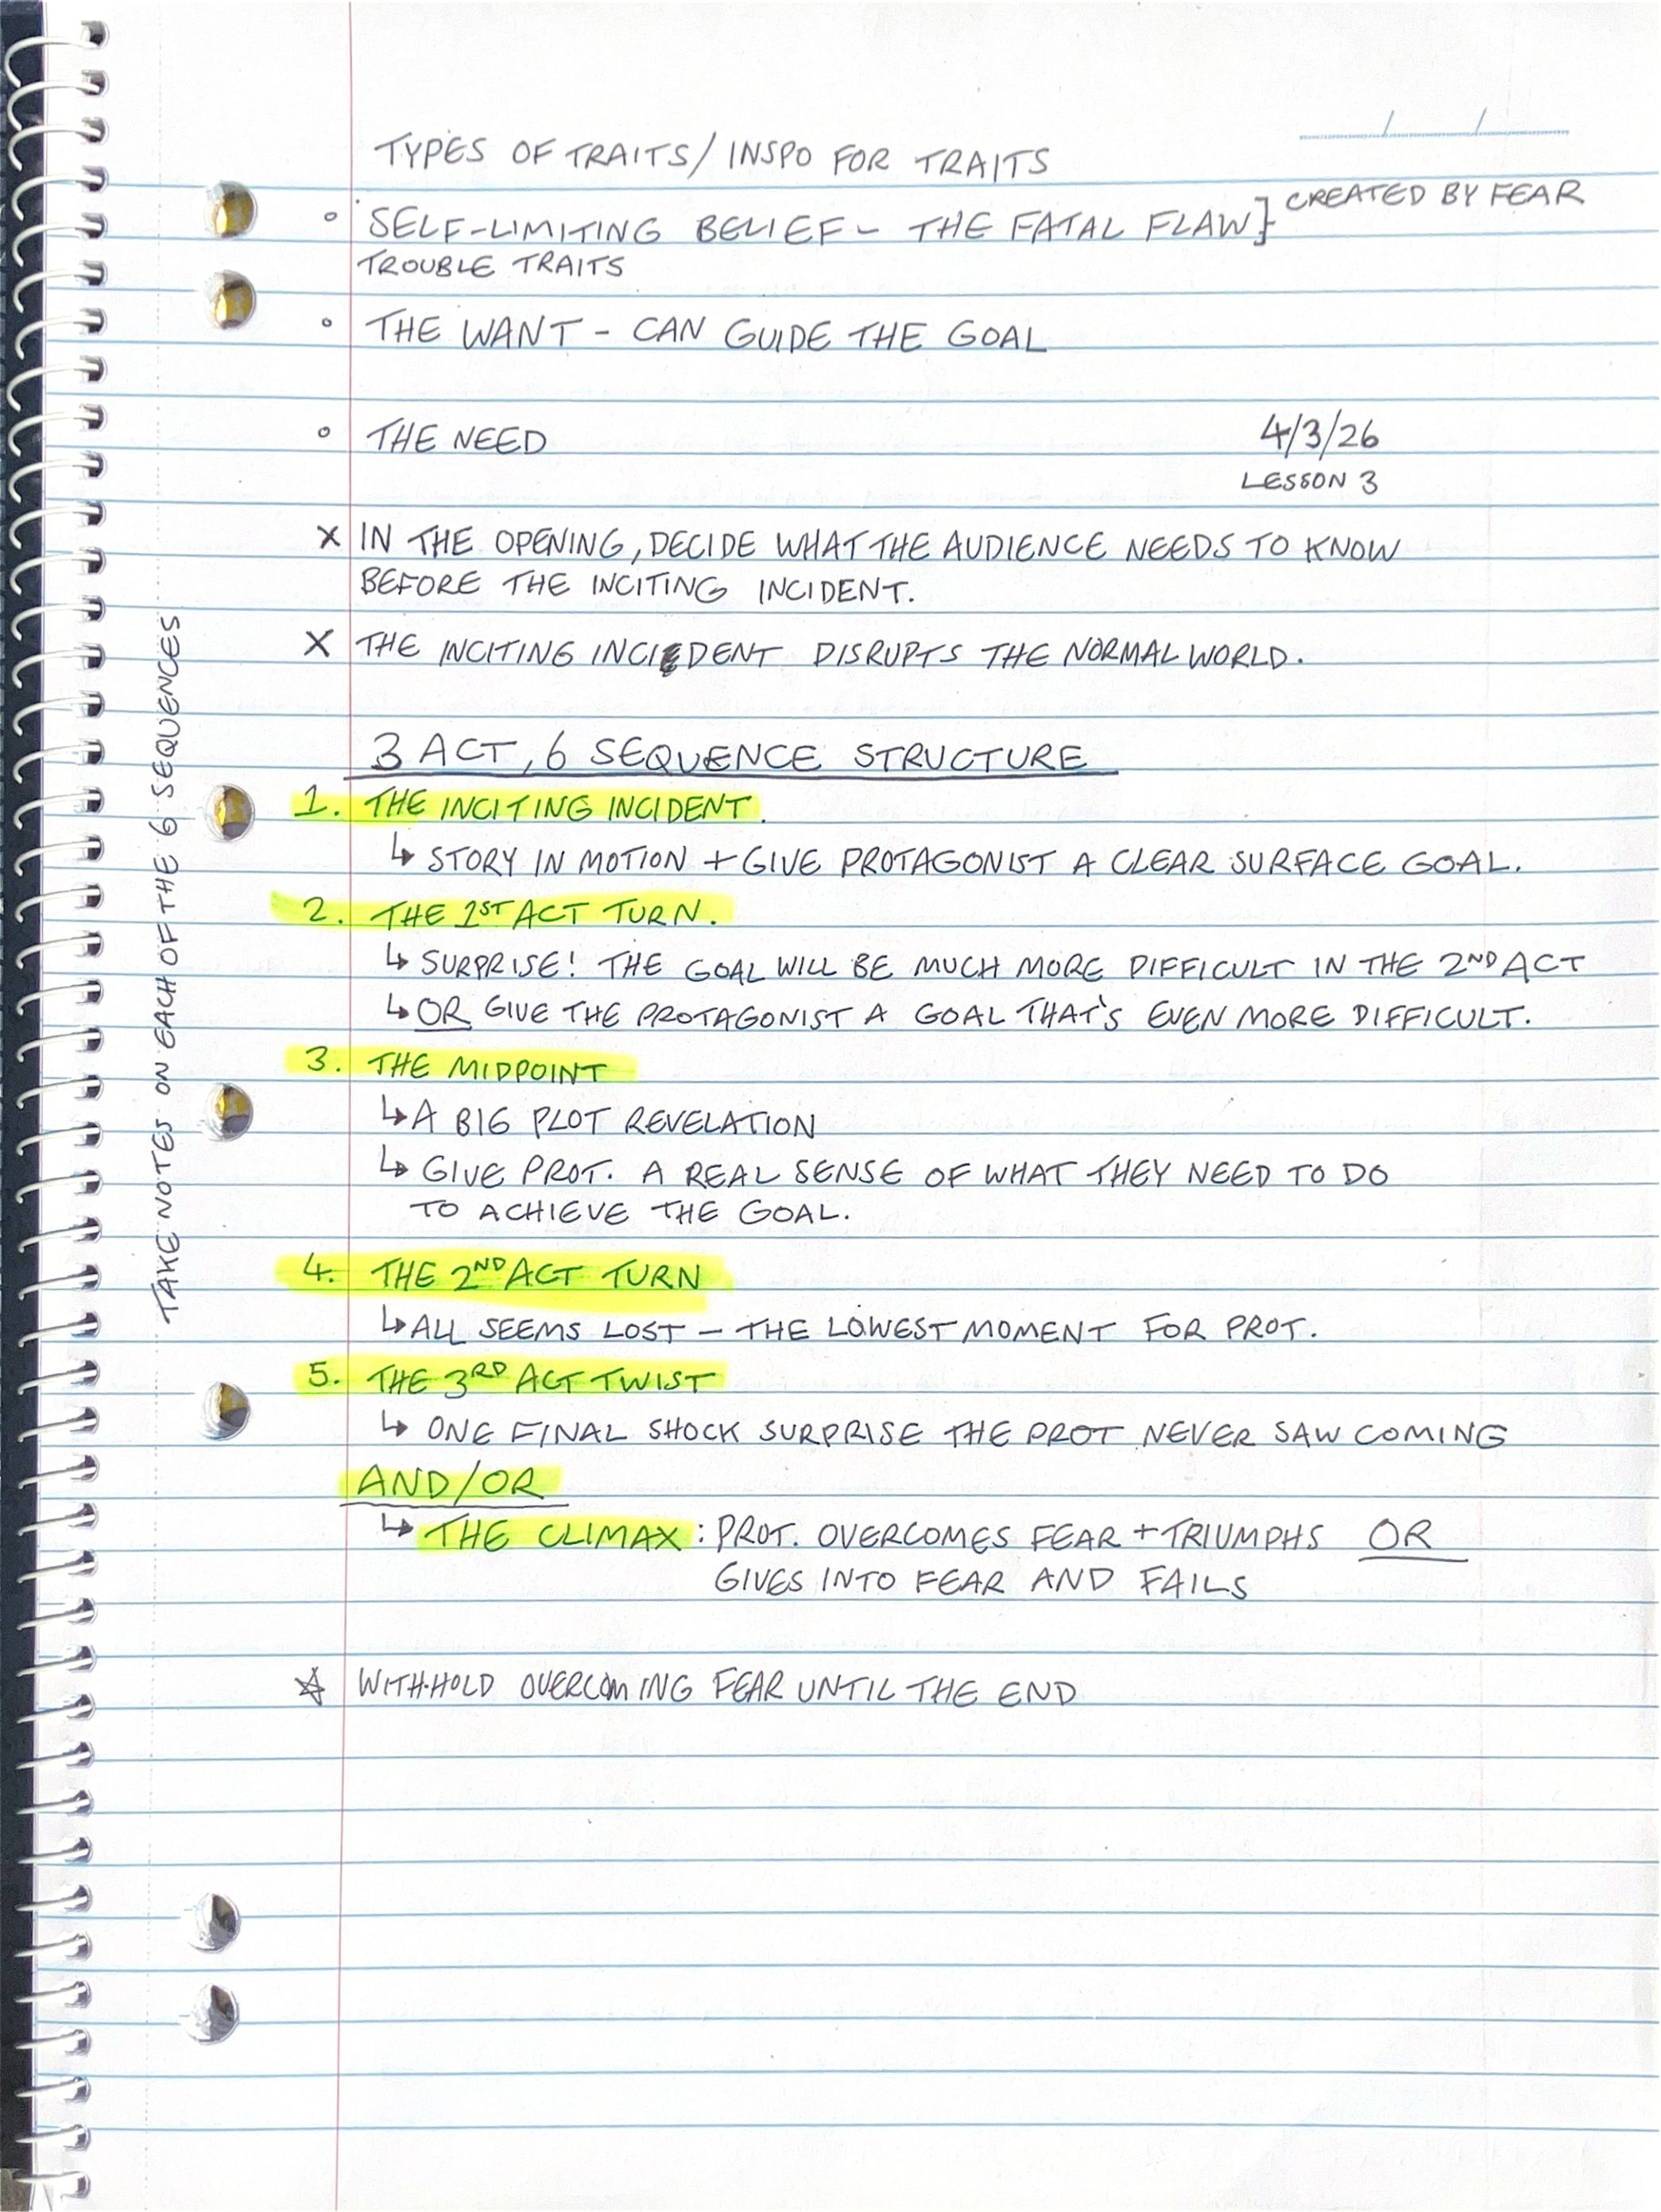 TYPES OF TRAITS/ INSPO FOR TRAITS
° SELF-LIMITING BELIEF - THE FATAL FLAW] CREATED BY FEAR
TROUBLE TRAITS
° THE WANT - CAN GUIDE THE GOAL
° THE NEED
4/3/26
LESSON 3
X IN THE OPENING, DECIDE WHAT THE AUDIENCE NEEDS TO KNOW
BEFORE THE INCITING INCIDENT.
X THE INCITING INCIDENT DISRUPTS THE NORMAL WORLD.
3 ACT, 6 SEQUENCE STRUCTURE
1. THE INCITING INCIDENT.
↳ STORY IN MOTION + GIVE PROTAGONIST A CLEAR SURFACE GOAL.
2. THE 1ST ACT TURN.
↳ SURPRISE! THE GOAL WILL BE MUCH MORE DIFFICULT IN THE 2ND ACT
↳ OR GIVE THE PROTAGONIST A GOAL THAT'S EVEN MORE DIFFICULT.
3. THE MIDPOINT
↳ A BIG PLOT REVELATION
↳ GIVE PROT. A REAL SENSE OF WHAT THEY NEED TO DO
TO ACHIEVE THE GOAL.
4. THE 2ND ACT TURN
↳ ALL SEEMS LOST - THE LOWEST MOMENT FOR PROT.
5. THE 3RD ACT TWIST
↳ ONE FINAL SHOCK SURPRISE THE PROT NEVER SAW COMING
AND/OR
↳ THE CLIMAX: PROT. OVERCOMES FEAR + TRIUMPHS OR
GIVES INTO FEAR AND FAILS
☆ WITHHOLD OVERCOMING FEAR UNTIL THE END
TAKE NOTES ON EACH OF THE 6 SEQUENCES